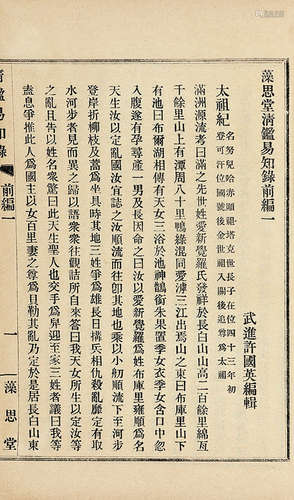 藻思堂清鑑易知錄前編一
武進許國英編輯
太祖紀
名努兒哈赤顯祖塔克世長子在位四十三年初
登可汗位國號後金世祖入關後追尊為太祖
滿洲源流考曰滿之先世姓愛新覺羅氏發祥於長白山山高二百餘里綿亙
千餘里山上有潭周八十里鴨綠混同愛滹三江出焉山之東曰布庫里山下
有池曰布爾湖相傳有天女三浴於池神鵲銜朱果置季女衣季女含口中忽
入腹遂有孕尋產一男及長因命之曰汝以愛新覺羅為姓布庫里雍順為名
天生汝以定亂國汝宜誌之汝順流而往卽其地也乘以小舠順流下至河步
登岸折柳枝及蒿為坐具時其地三姓爭為雄長日搆兵相仇殺亂靡定有取
水河步者見而異之歸以語衆衆往觀詰所自來答曰我天女所生以定汝等
之亂者且告以姓名衆驚曰此天生聖人也交手爲舁迎至家三姓者議曰我等
盍息爭推此人爲國主以女百里妻之尊爲貝勒其亂乃定於是居長白山東
清鑑易知錄
前編一
一
藻思堂